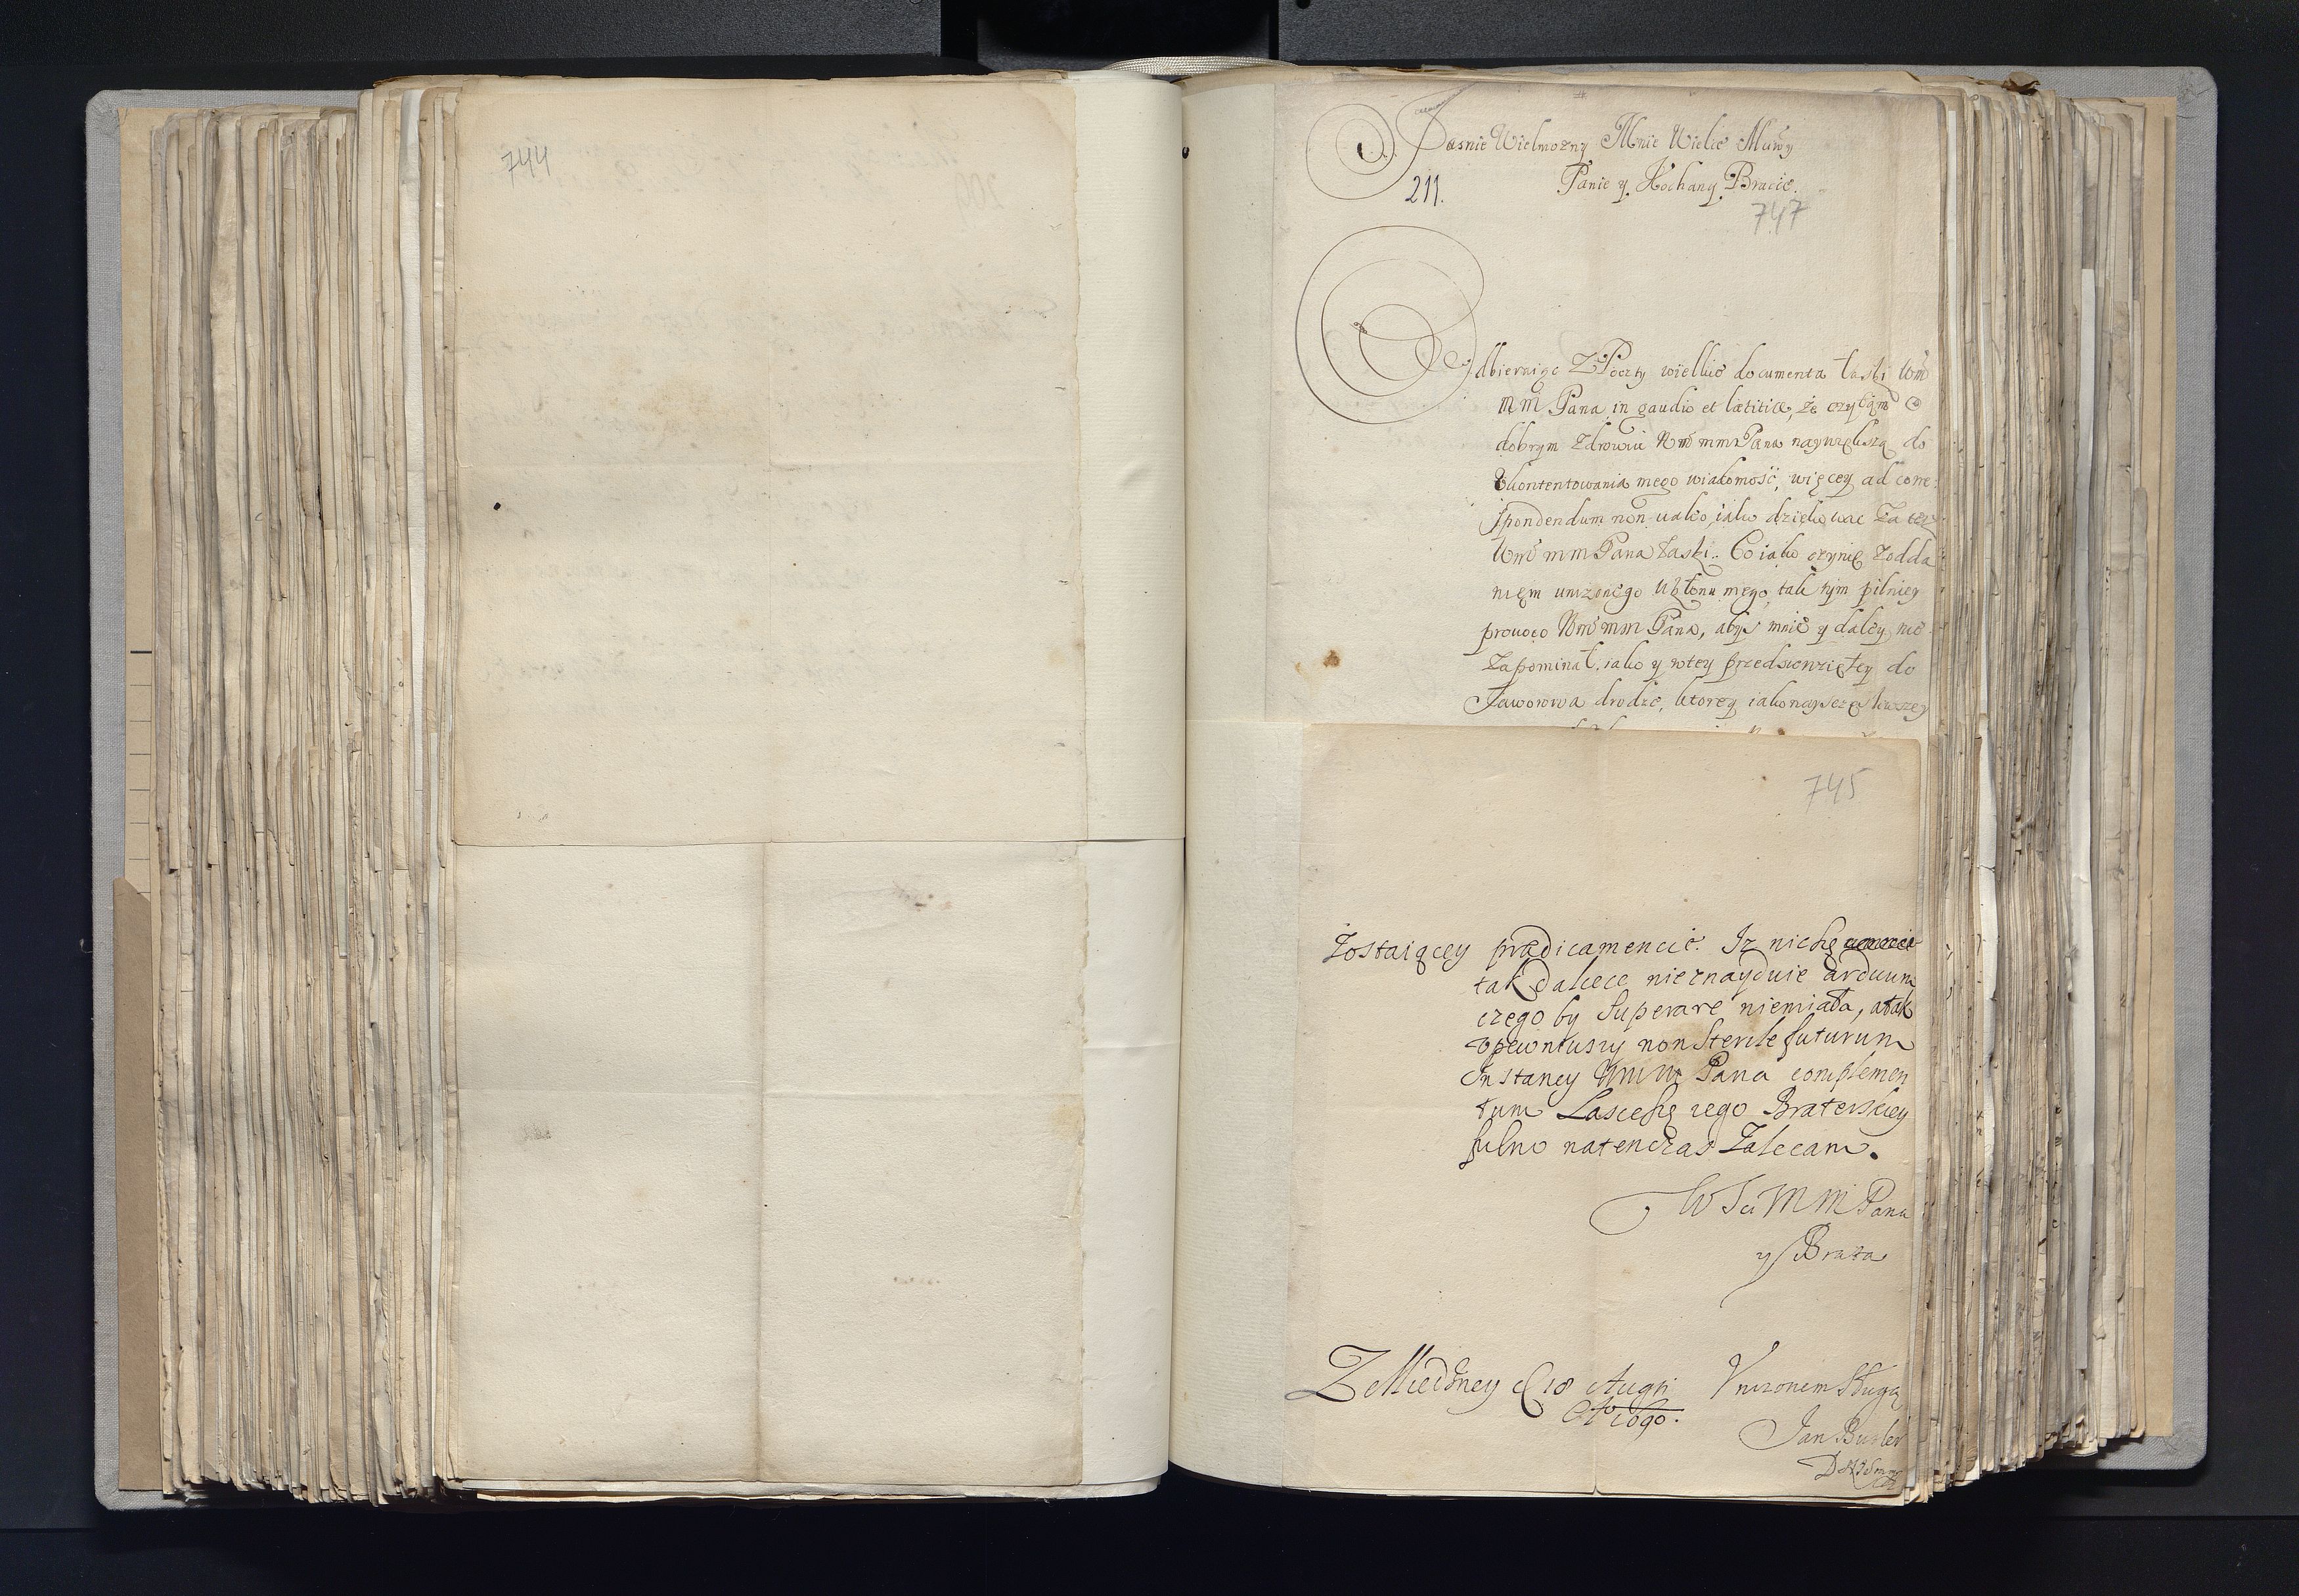 744
Jasnie Wielmozny Mnie Wielce Muwy
Panie y Kochany Bracie.
211.
747
Odbieraiąc Z Poczty wielkie documenta łaski Wm̃
mm Pana in gaudio et lætitia, że czytam o
dobrym Zdrowiu Wm̃ mm Pana naywiększą do
Ukontentowania mego wiadomość, więcey ad corre:
spondendum non ualeo, iako dziękować Za tez
Wm̃ mm Pana łaski. Co iako czynię Zodda
niem unizonego Ukłonu mego, tak tym pilniey
prouoco Wm̃ mm Pana, abyś mnie y daley nie
Zapominał, iako y wtey przedsiewziętey do
Jaworowa drodze, ktorey iakonayszczęśliwszey
745
Zostaiącey prædicamencie. Iz nichę
tak dalece nieznayduie arduum
czego by Superare niemiała, atak
Vpewniwszy non Sterile futurum
Instancy Wm m Pana complemen
tum Lascesię iego Braterskiey
pilno natenczas Zalecam.
W Sci M M Pana
y Brata
Z Miedzney d 18 Augti
Ao 1690.
Vnizonem Sługą
Jan Butler